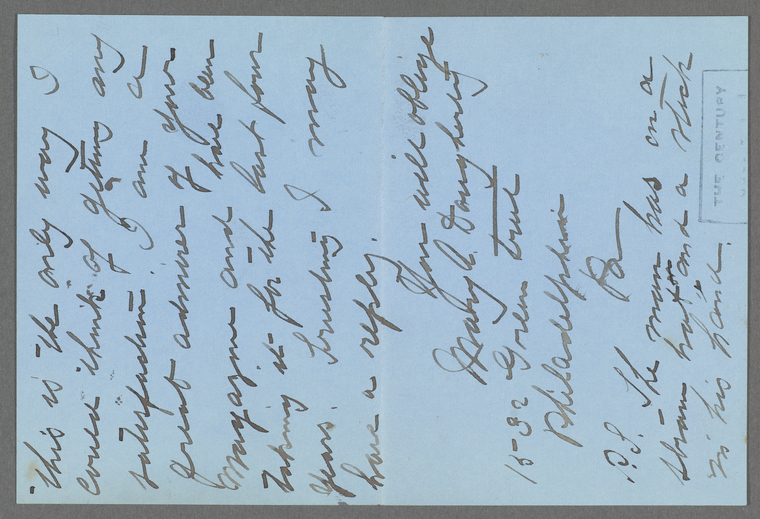 this is the only way I
could think of getting any
satisfaction. I am a
great admirer of your
Magazine and have been
taking it for the last four
years. Trusting I may
have a reply.
You will oblige
Mary C. Dougherty
15-32 Green true
Philadelphia
Pa
P.S. The man has on a
straw hat and a stick
in his hand.
THE CENTURY